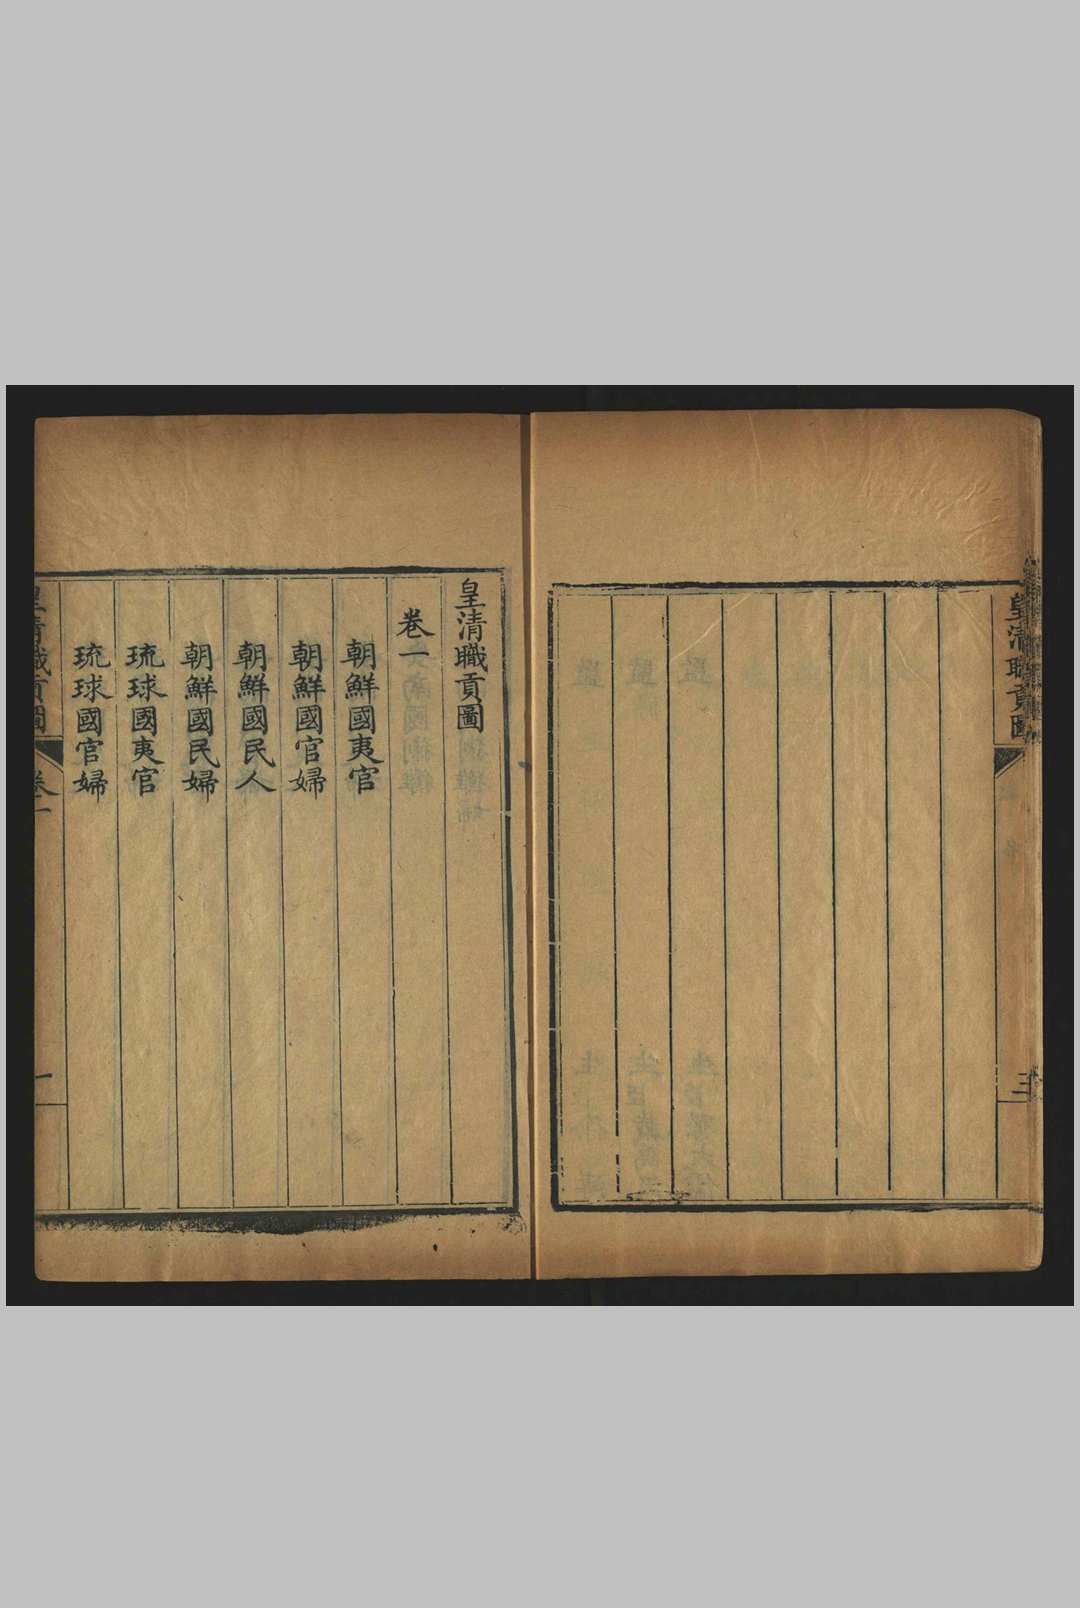 皇清職貢圖
三
皇清職貢圖
卷一
朝鮮國夷官
朝鮮國官婦
朝鮮國民人
朝鮮國民婦
琉球國夷官
琉球國官婦
皇清職貢圖
卷一
一